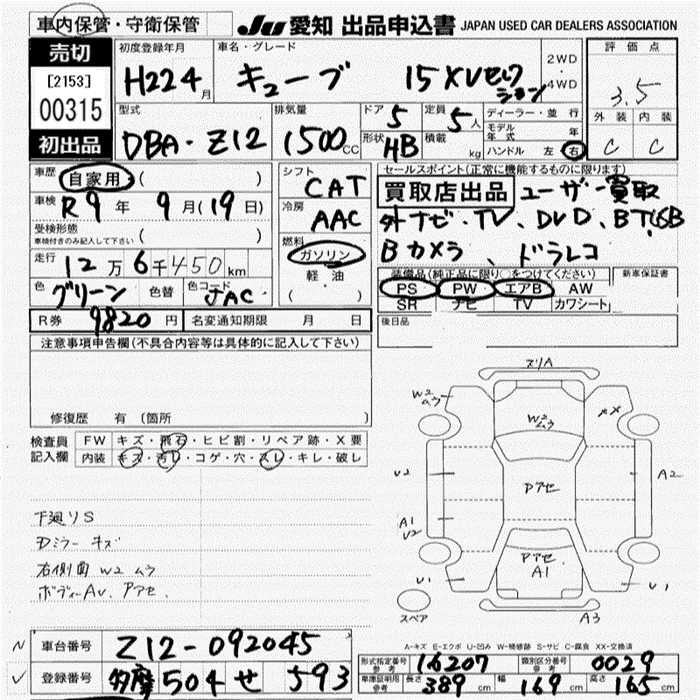 車内保管・守衛保管 JU 愛知 出品申込書 JAPAN USED CAR DEALERS ASSOCIATION
売切
[2153]
00315
初出品
初度登録年月 H22 4月
車名・グレード キューブ 15XVセレクション
2WD・4WD
評価点 3.5
外装 C 内装 C
型式 DBA・Z12
排気量 1500CC
ドア 5 定員 5人
形状 HB 積載 kg
ディーラー・並行
モデル年式 年
ハンドル 左 右
車歴 自家用・( )
車検 R9年 9月(19日)
受検形態 ( )
車検付きのみ記入して下さい
走行 12万6千450km
色 グリーン 色替 色コード JAC
R券 9820円 名変通知期限 月 日
シフト CAT
冷房 AAC
燃料 ガソリン
軽・油
・( )
セールスポイント(正常に機能するものに限ります)
買取店出品 ユーザー買取
外ナビ、TV、DVD、BT、USB
Bカメラ、ドラレコ
装備品(純正品に限り○をつけてください) 新車保証書
PS PW エアB AW
SR ナビ TV カワシート
後日品
注意事項申告欄(不具合内容等は具体的に記入して下さい)
修復歴 有(箇所
検査員記入欄
FW キズ・飛石・ヒビ割・リペア跡・X要
内装 キズ・汚レ・コゲ・穴・スレ・キレ・破レ
下廻りS
Dミラー キズ
右側面 W2 ムラ
ボディーAv、アアセ
スリA
W2ムラ
W2ムラ
XX
U2
アアセ
A2
A1
U2
アアセ
A1
U1
U1
スペア
A3
A-キズ E-エクボ U-凹み W-補修跡 S-サビ C-腐食 XX-交換済
車台番号 Z12-092045
登録番号 多摩 504 せ 593
型式指定番号 参考 16207 類別区分番号 参考 0029
車庫証明用 参考 長さ 389cm 幅 169cm 高さ 165cm